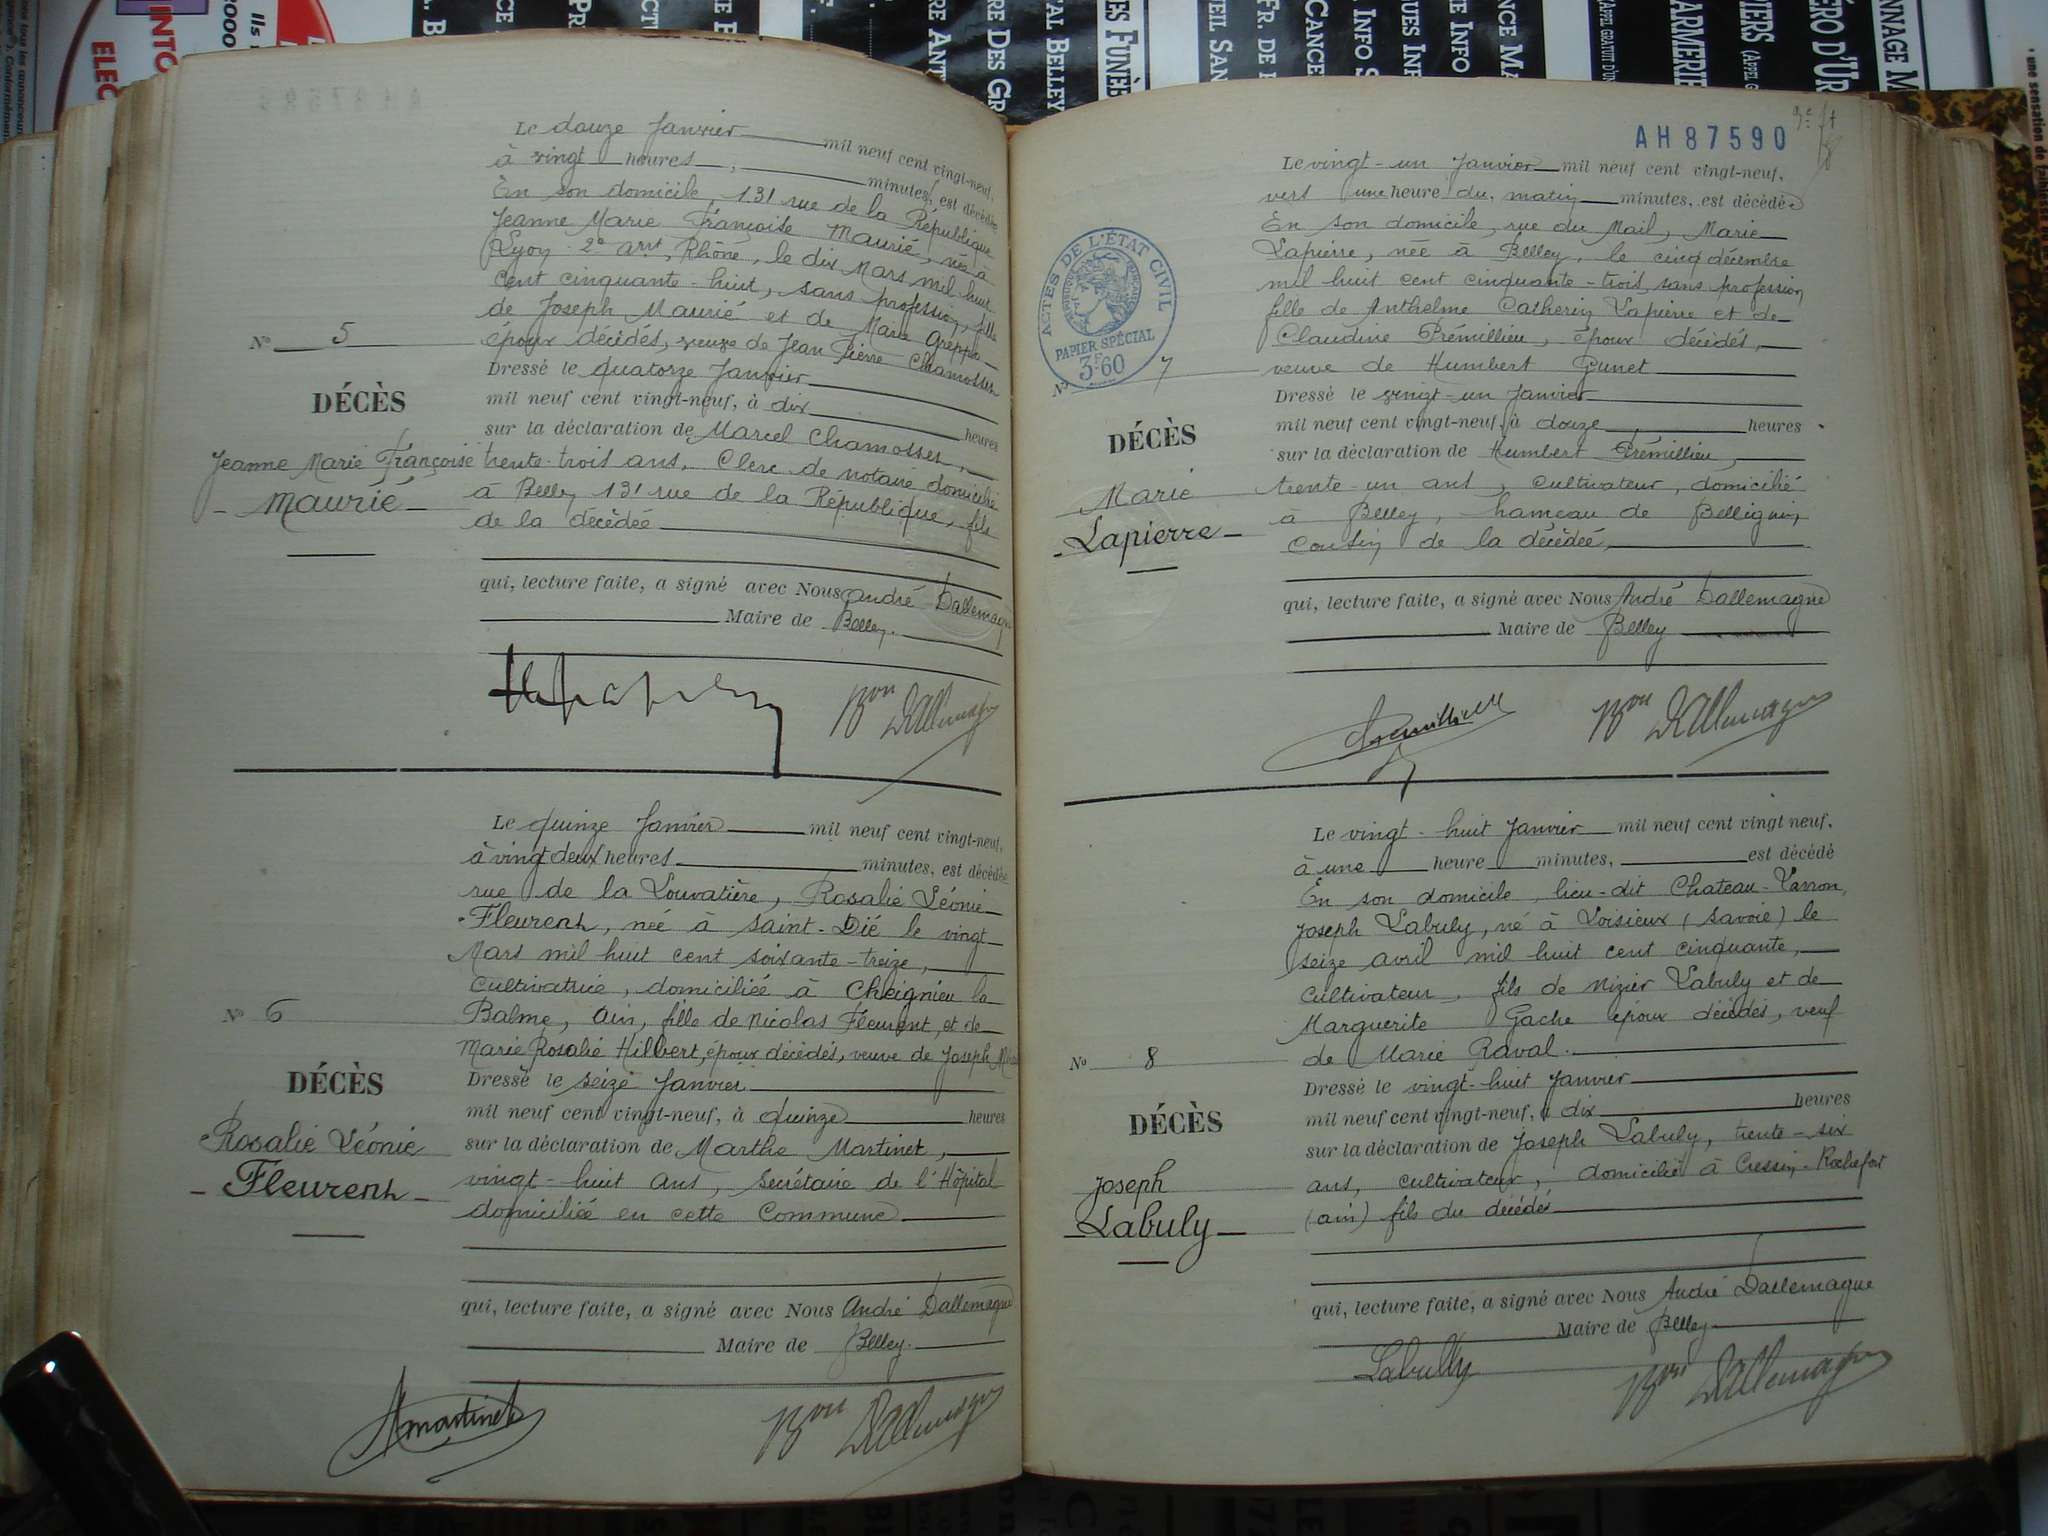 Le douze Janvier mil neuf cent vingt-neuf,
à vingt heures, minutes, est décédée
En son domicile, 131 rue de la République
Jeanne Marie Françoise Maurié, née à
Lyon 2e arrt, Rhône, le dix Mars mil huit
cent cinquante-huit, sans profession, fille
de Joseph Maurié et de Marie Greppo
époux décédés, veuve de Jean Pierre Chamosset
Dressé le quatorze Janvier
mil neuf cent vingt-neuf, à dix heures
sur la déclaration de Marcel Chamosset,
trente-trois ans, Clerc de notaire domicilié
à Belley 131 rue de la République, fils
de la décédée
N° 5
DÉCÈS
Jeanne Marie Françoise
Maurié
qui, lecture faite, a signé avec Nous André Dallemagne
Maire de Belley.
Bon Dallemagne
Le quinze Janvier mil neuf cent vingt-neuf,
à vingt deux heures minutes, est décédée
rue de la Louvatière, Rosalie Léonie
Fleurent, née à Saint-Dié le vingt
Mars mil huit cent soixante-treize,
Cultivatrice, domiciliée à Cheignieu la
Balme, Ain, fille de Nicolas Fleurent, et de
Marie Rosalie Hilbert, époux décédés, veuve de Joseph
Dressé le seize Janvier
mil neuf cent vingt-neuf, à quinze heures
sur la déclaration de Marthe Martinet,
vingt-huit ans, Secrétaire de l'Hôpital
domiciliée en cette Commune
N° 6
DÉCÈS
Rosalie Léonie
Fleurent
qui, lecture faite, a signé avec Nous André Dallemagne
Maire de Belley.
Martinet
Bon Dallemagne
AH 87590
ACTES DE L'ÉTAT CIVIL
PAPIER SPÉCIAL
3F60
Le vingt-un Janvier mil neuf cent vingt-neuf,
vers une heure du matin minutes, est décédée
En son domicile, rue du Mail, Marie
Lapierre, née à Belley, le cinq décembre
mil huit cent cinquante-trois, sans profession
fille de Anthelme Catherin Lapierre et de
Claudine Prémillieu, époux décédés,
veuve de Humbert Gunet
Dressé le vingt-un Janvier
mil neuf cent vingt-neuf, à douze heures
sur la déclaration de Humbert Prémillieu,
trente-un ans, Cultivateur, domicilié
à Belley, hameau de Belligneu,
Cousin de la décédée,
N° 7
DÉCÈS
Marie
Lapierre
qui, lecture faite, a signé avec Nous André Dallemagne
Maire de Belley
Premillieu
Bon Dallemagne
Le vingt-huit Janvier mil neuf cent vingt neuf,
à une heure minutes, est décédé
En son domicile, lieu-dit Chateau-Varron,
Joseph Labully, né à Loisieux (Savoie) le
seize avril mil huit cent cinquante,
Cultivateur, fils de Nizier Labully et de
Marguerite Gache époux décédés, veuf
de Marie Raval.
Dressé le vingt-huit Janvier
mil neuf cent vingt-neuf, à dix heures
sur la déclaration de Joseph Labully, trente-six
ans, cultivateur, domicilié à Cressin-Rochefort
(ain) fils du décédé
N° 8
DÉCÈS
Joseph
Labully
qui, lecture faite, a signé avec Nous André Dallemagne
Maire de Belley
Labully
Bon Dallemagne